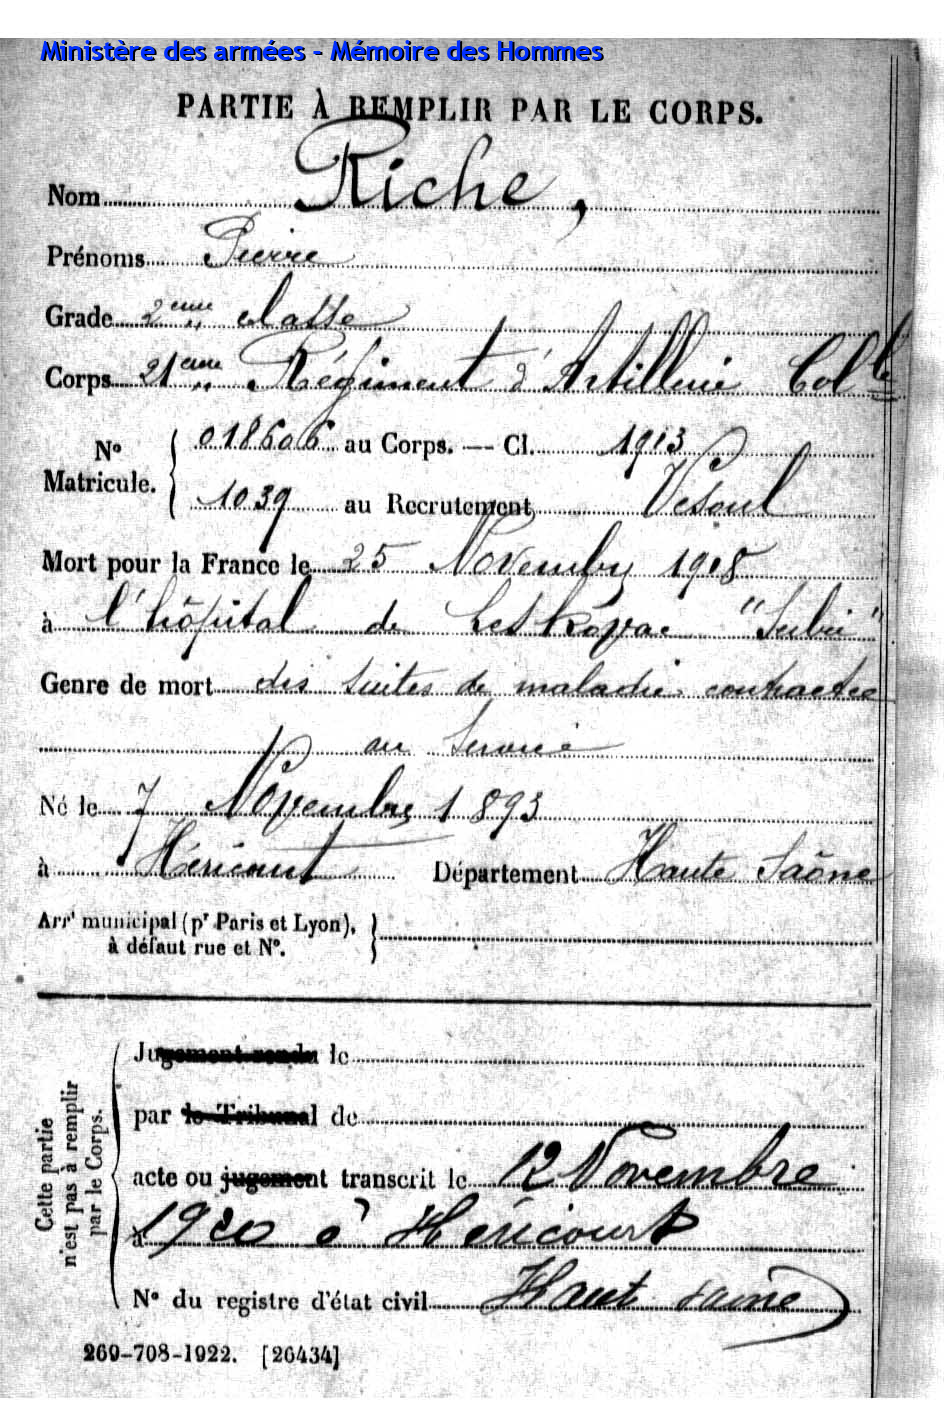 Ministère des armées - Mémoire des Hommes
PARTIE À REMPLIR PAR LE CORPS.
Nom Riche,
Prénoms Pierre
Grade 2ème classe
Corps 21ème Régiment d'Artillerie Colle
No Matricule. { 018606 au Corps. — Cl. 1913
1039 au Recrutement Vesoul
Mort pour la France le 25 Novembre 1918
à l'hôpital de Leskovac "Serbie"
Genre de mort des suites de maladie contractée
au Service
Né le 7 Novembre 1893
à Héricourt Département Haute Saône
Arrt municipal (pr Paris et Lyon),
à défaut rue et No.
Cette partie
n'est pas à remplir
par le Corps.
Jugement rendu le
par le Tribunal de
acte ou jugement transcrit le 12 Novembre
à 1920 à Héricourt
No du registre d'état civil Haut Saône
269-708-1922. [26434]